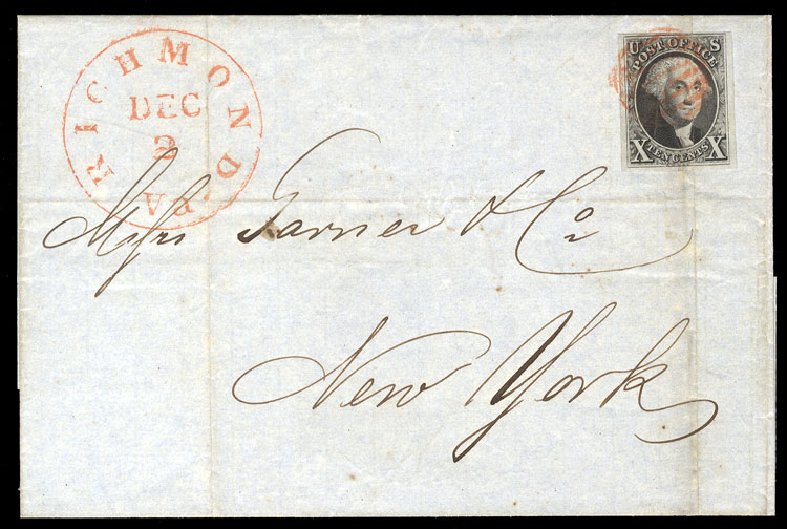 RICHMOND VA
DEC
2
U S
POST OFFICE
X TEN CENTS X
Messrs Garner & Co
New York